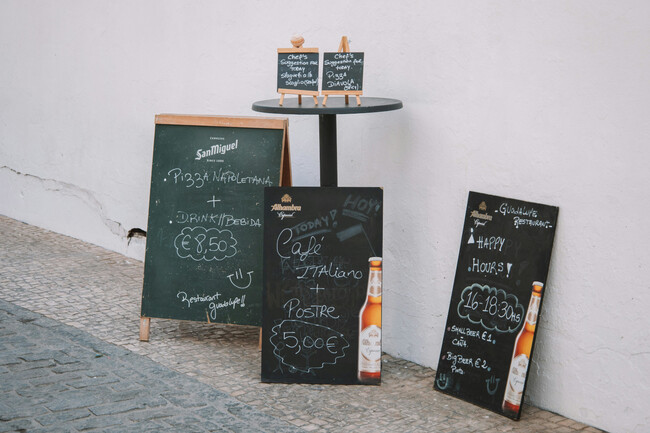 Chef's
Suggestion for
today
Chef's
Suggestion for
today
Pizza
DIAVOLA
San Miguel
• PIZZA NAPOLETANA
+
• DRINK // BEBIDA
€8,50
Restaurant
guadalupe!!
Alhambra
Especial
TODAY!
HOY!
Café
ITALIANO
+
POSTRE
5,00€
Alhambra
Especial
GUADALUPE
RESTAURANT
HAPPY
HOURS!
16-18:30HS
• SMALL BEER €1
CAÑA
• BIG BEER €2
PINTA